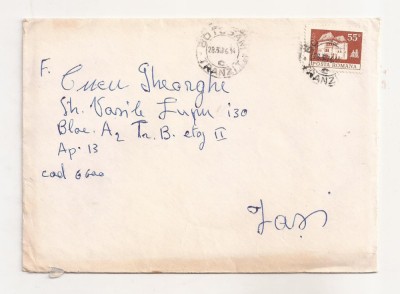 BOTOSANI
TRANZIT
55
POSTA ROMANA
F.
Cucu Gheorghe
Str. Vasile Lupu 130
Bloc. A2 Tr. B. etaj II
Ap. 13
cod 6600
Iași